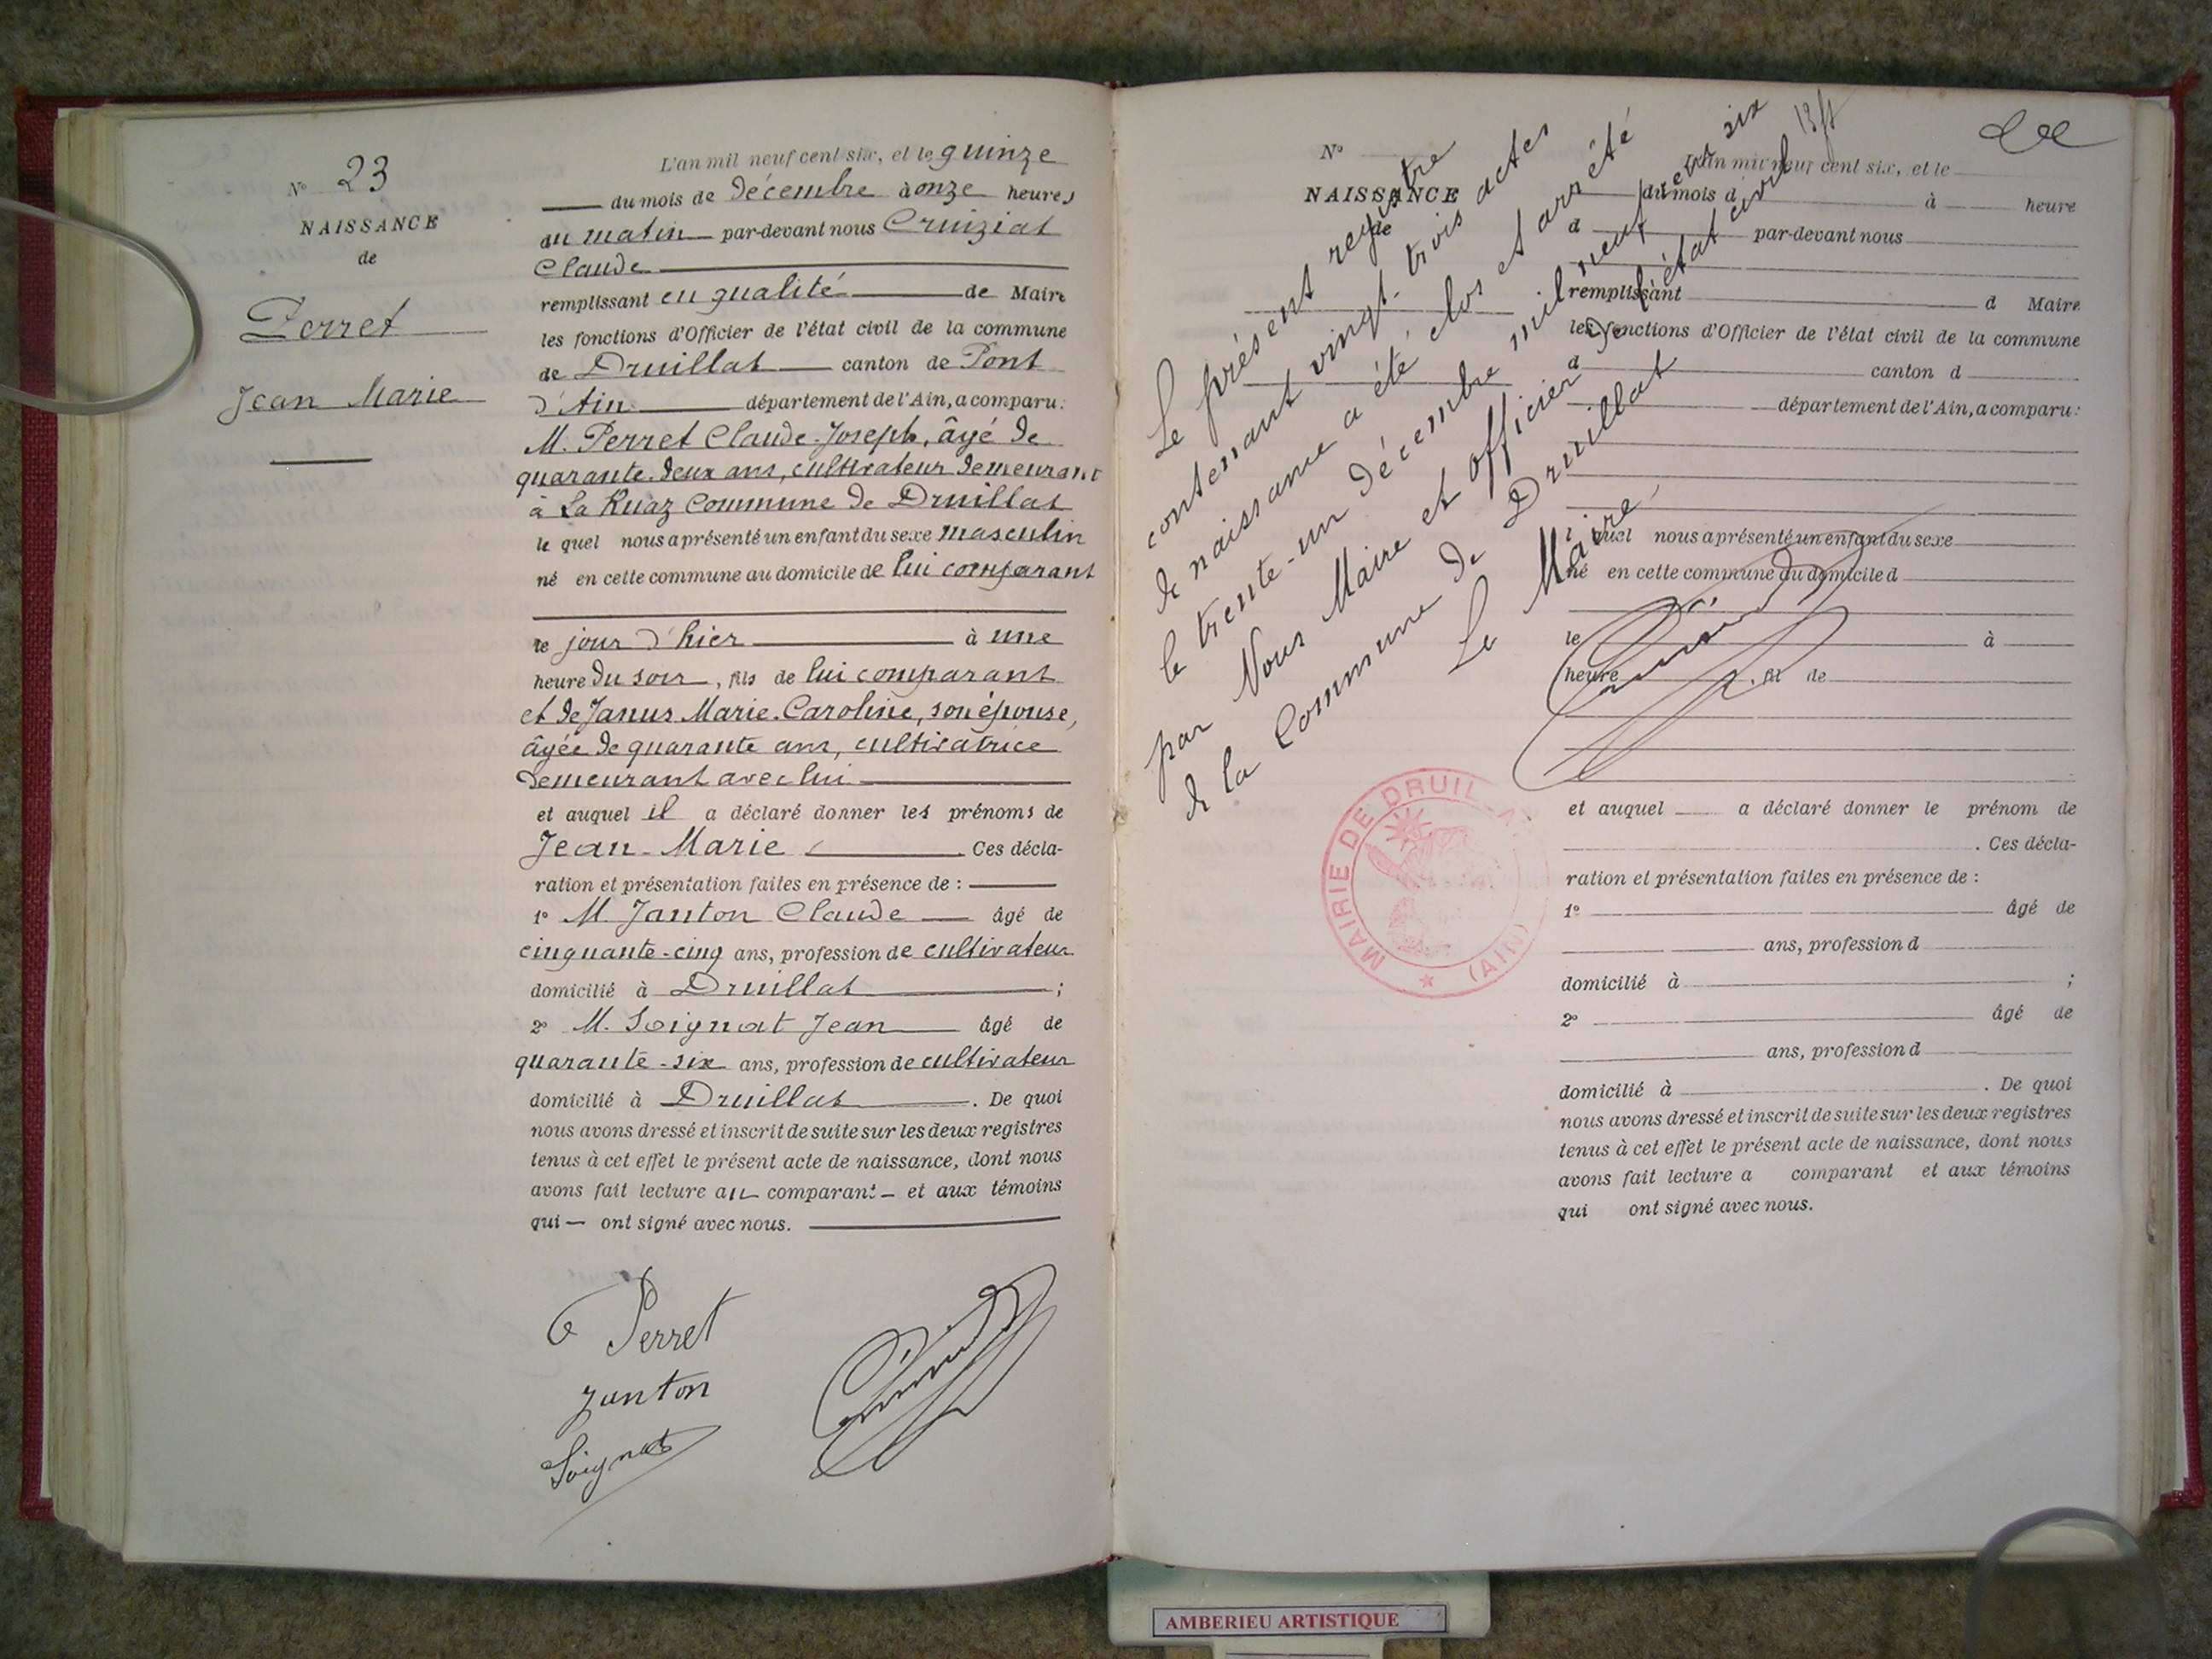 N° 23
NAISSANCE
de
Perret
Jean Marie
L'an mil neuf cent six, et le quinze
du mois de décembre à onze heures
du matin par-devant nous Cruiziat
Claude
remplissant en qualité de Maire
les fonctions d'Officier de l'état civil de la commune
de Druillat canton de Pont
d'Ain département de l'Ain, a comparu:
M. Perret Claude-Joseph, âgé de
quarante-deux ans, cultivateur demeurant
à La Ruaz Commune de Druillat
le quel nous a présenté un enfant du sexe masculin
né en cette commune au domicile de lui comparant
le jour d'hier à une
heure du soir, fils de lui comparant
et de Janus Marie-Caroline, son épouse,
âgée de quarante ans, cultivatrice
demeurant avec lui
et auquel il a déclaré donner les prénoms de
Jean-Marie . Ces décla-
ration et présentation faites en présence de :
1° M. Janton Claude âgé de
cinquante-cinq ans, profession de cultivateur
domicilié à Druillat ;
2° M. Soignat Jean âgé de
quarante-six ans, profession de cultivateur
domicilié à Druillat . De quoi
nous avons dressé et inscrit de suite sur les deux registres
tenus à cet effet le présent acte de naissance, dont nous
avons fait lecture au comparant et aux témoins
qui ont signé avec nous.
Perret
Janton
Soignat
N°
NAISSANCE
de
Le présent registre
contenant vingt-trois actes
de naissance a été clos et arrêté
le trente-un décembre mil neuf cent six
par Nous Maire et officier de l'état civil
de la Commune de Druillat
Le Maire,
L'an mil neuf cent six, et le
du mois d à heure
d par-devant nous
remplissant d Maire
les fonctions d'Officier de l'état civil de la commune
d canton d
département de l'Ain, a comparu:
l quel nous a présenté un enfant du sexe
né en cette commune au domicile d
le à
heure , fil de
MAIRIE DE DRUILLAT
(AIN)
et auquel a déclaré donner le prénom de
. Ces décla-
ration et présentation faites en présence de :
1° âgé de
ans, profession d
domicilié à ;
2° âgé de
ans, profession d
domicilié à . De quoi
nous avons dressé et inscrit de suite sur les deux registres
tenus à cet effet le présent acte de naissance, dont nous
avons fait lecture a comparant et aux témoins
qui ont signé avec nous.
AMBERIEU ARTISTIQUE